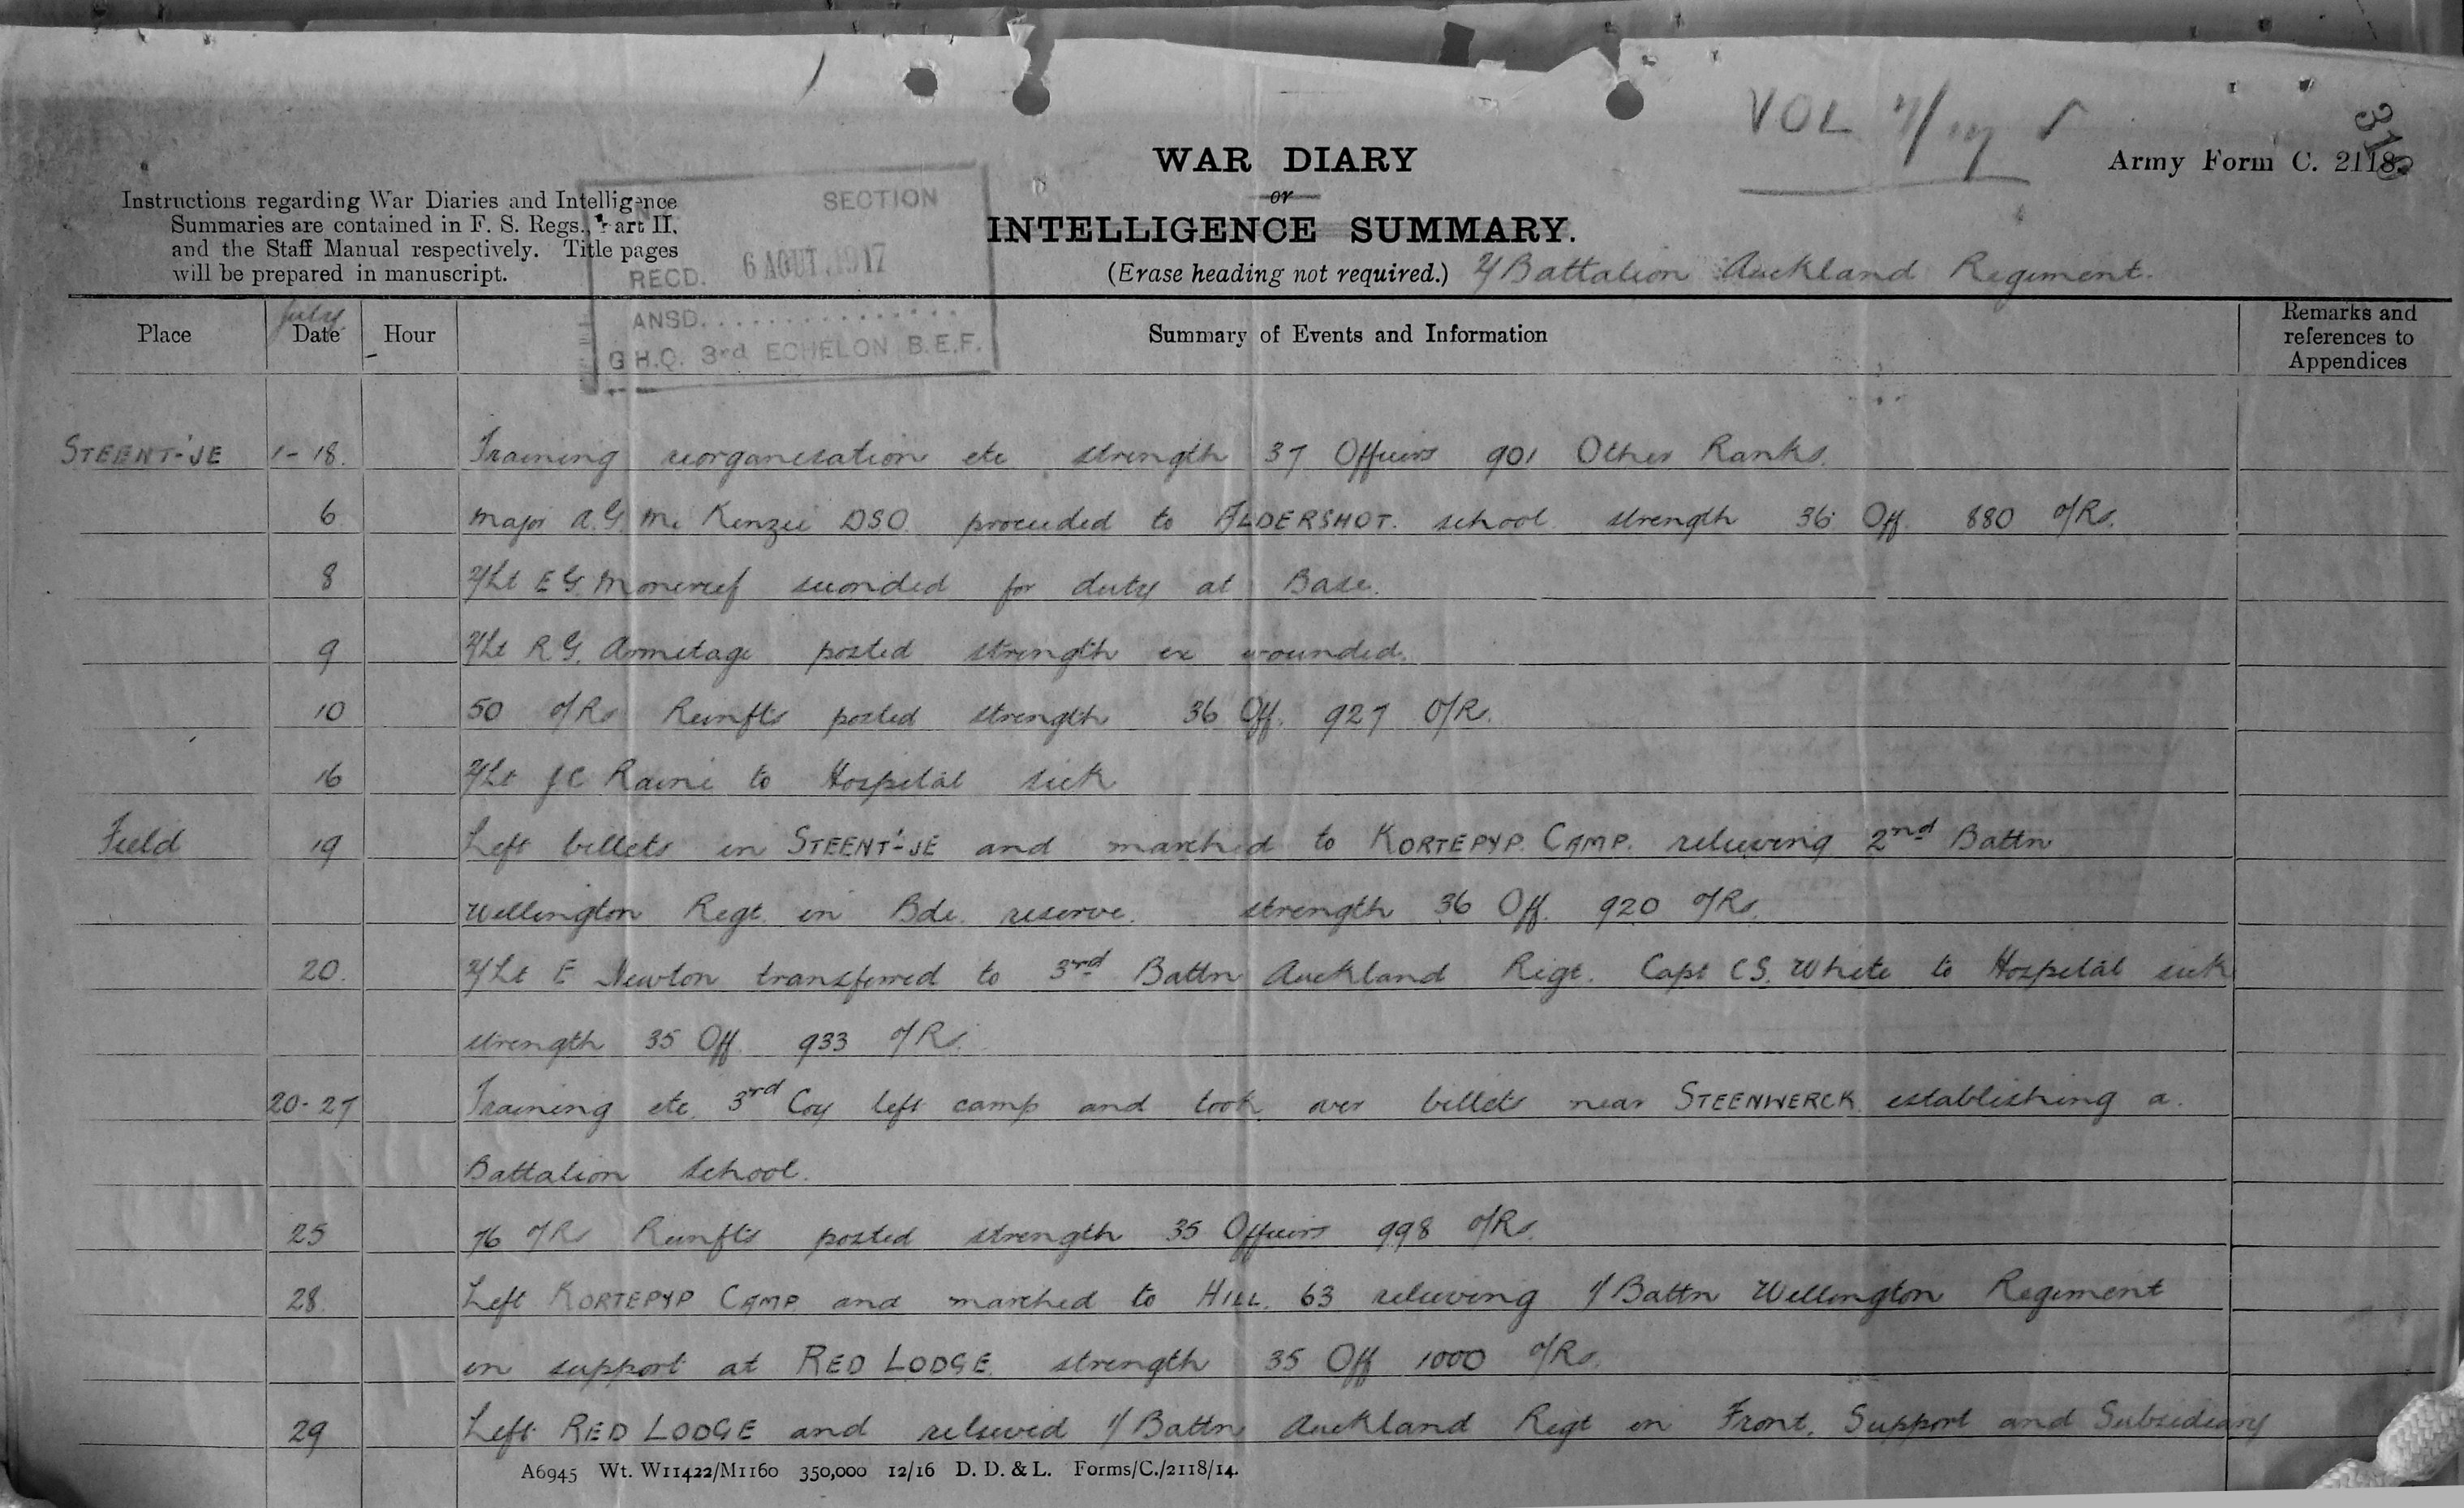 VOL
310
WAR DIARY
Army Form C. 2118.
or
INTELLIGENCE SUMMARY.
(Erase heading not required.) 2/Battalion Auckland Regiment.
Instructions regarding War Diaries and Intelligence
Summaries are contained in F. S. Regs., Part II.
and the Staff Manual respectively. Title pages
will be prepared in manuscript.
SECTION
RECD. 6 AOUT 1917
ANSD. . . . . . . . . . . . . . .
G.H.Q. 3rd ECHELON B.E.F.
July
Place Date Hour Summary of Events and Information Remarks and references to Appendices
STEENT'JE 1-18. Training reorganisation etc strength 37 Officers 901 Other Ranks.
6 Major A.G. McKenzie DSO. proceeded to ALDERSHOT. school strength 36 Off. 880 O/Rs.
8 2/Lt E G. Moncrief seconded for duty at Base.
9 2/Lt R G. Armitage posted strength ex wounded.
10 50 O/Rs Reinfts posted strength 36 Off. 927 O/Rs.
16 2/Lt J C Raine to Hospital sick
Field 19 Left billets in STEENT'-JE and marched to KORTEPYP CAMP. relieving 2nd Battn
Wellington Regt. in Bde. reserve. strength 36 Off. 920 O/Rs.
20. 2/Lt E Newton transferred to 3rd Battn Auckland Regt. Capt C S. White to Hospital sick
strength 35 Off. 933 O/Rs.
20-27 Training etc. 3rd Coy left camp and took over billets near STEENWERCK establishing a
Battalion School.
25 76 O/Rs Reinfts posted strength 35 Officers 998 O/Rs.
28. Left KORTEPYP CAMP and marched to HILL 63 relieving 1/Battn Wellington Regiment
in support at RED LODGE. strength 35 Off 1000 O/Rs.
29 Left RED LODGE and relieved 1/Battn Auckland Regt in Front, Support and Subsidiary
A6945 Wt. W11422/M1160 350,000 12/16 D. D. & L. Forms/C./2118/14.